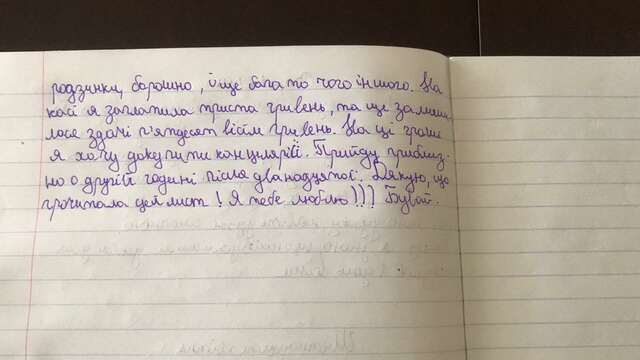 родзинки, борошно, й ще багато чого іншого. На
касі я заплатила триста гривень, та ще залиши
лося здачі п'ятдесят вісім гривень. На ці гроші
я хочу докупити канцелярій. Прийду приблиз-
но о другій годині після дванадцятої. Дякую, що
прочитала цей лист! Я тебе люблю))) Бувай.